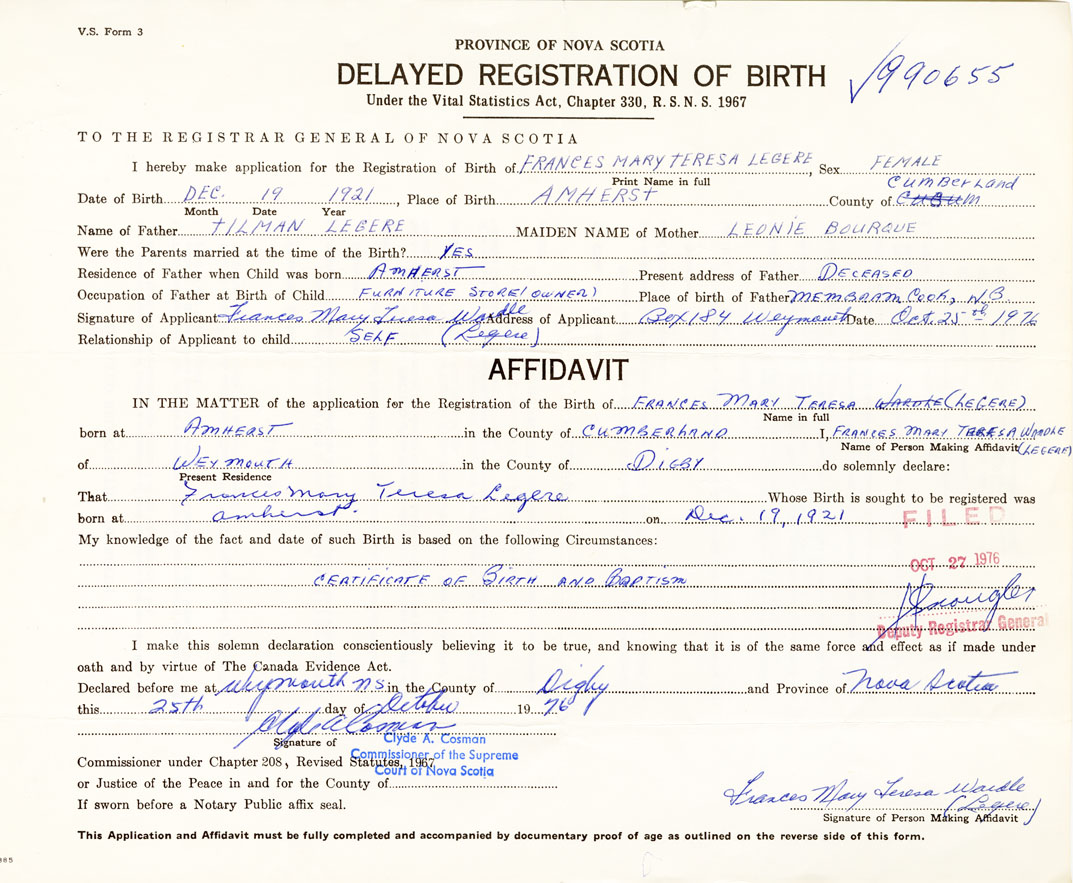 V.S. Form 3
PROVINCE OF NOVA SCOTIA
DELAYED REGISTRATION OF BIRTH
√990655
Under the Vital Statistics Act, Chapter 330, R.S.N.S. 1967
TO THE REGISTRAR GENERAL OF NOVA SCOTIA
I hereby make application for the Registration of Birth of FRANCES MARY TERESA LEGERE, Sex FEMALE
Print Name in full
CUMBERLAND
Date of Birth DEC. 19 1921, Place of Birth AMHERST County of
Month Date Year
Name of Father TILMAN LEGERE MAIDEN NAME of Mother LEONIE BOURQUE
Were the Parents married at the time of the Birth? YES
Residence of Father when Child was born AMHERST Present address of Father DECEASED
Occupation of Father at Birth of Child FURNITURE STORE (OWNER) Place of birth of Father MEMBRAM COOK, N.B.
Signature of Applicant Frances Mary Teresa Wardle Address of Applicant Box 184 Weymouth Date Oct. 25th 1976
Relationship of Applicant to child SELF (Legere)
AFFIDAVIT
IN THE MATTER of the application for the Registration of the Birth of FRANCES MARY TERESA WARDLE (LEGERE)
Name in full
born at AMHERST in the County of CUMBERLAND I, FRANCES MARY TERESA WARDLE
Name of Person Making Affidavit (LEGERE)
of WEYMOUTH in the County of DIGBY do solemnly declare:
Present Residence
That Frances Mary Teresa Legere Whose Birth is sought to be registered was
born at amherst. on Dec. 19, 1921
FILED
My knowledge of the fact and date of such Birth is based on the following Circumstances:
OCT 27 1976
CERTIFICATE OF BIRTH AND BAPTISM
Deputy Registrar General
I make this solemn declaration conscientiously believing it to be true, and knowing that it is of the same force and effect as if made under
oath and by virtue of The Canada Evidence Act.
Declared before me at Weymouth NS in the County of Digby and Province of Nova Scotia
this 25th day of October 19 76
Clyde A Cosman
Signature of
Clyde A. Cosman
Commissioner of the Supreme
Court of Nova Scotia
Commissioner under Chapter 208, Revised Statutes, 1967
or Justice of the Peace in and for the County of
If sworn before a Notary Public affix seal.
Frances Mary Teresa Wardle
(Legere)
Signature of Person Making Affidavit
This Application and Affidavit must be fully completed and accompanied by documentary proof of age as outlined on the reverse side of this form.